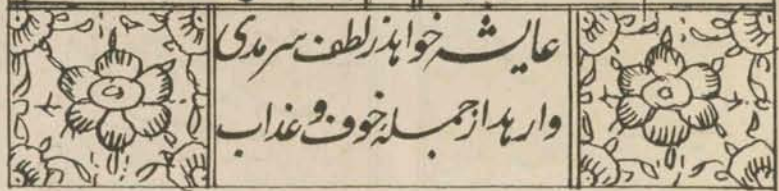 عایشه خواهد ز لطف سرمدی
وارهد از جمله خوف و عذاب